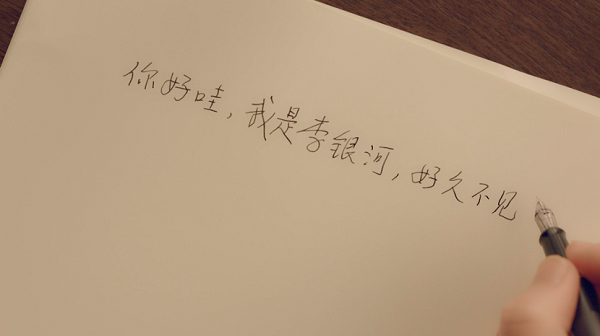 你好哇，我是李银河，好久不见